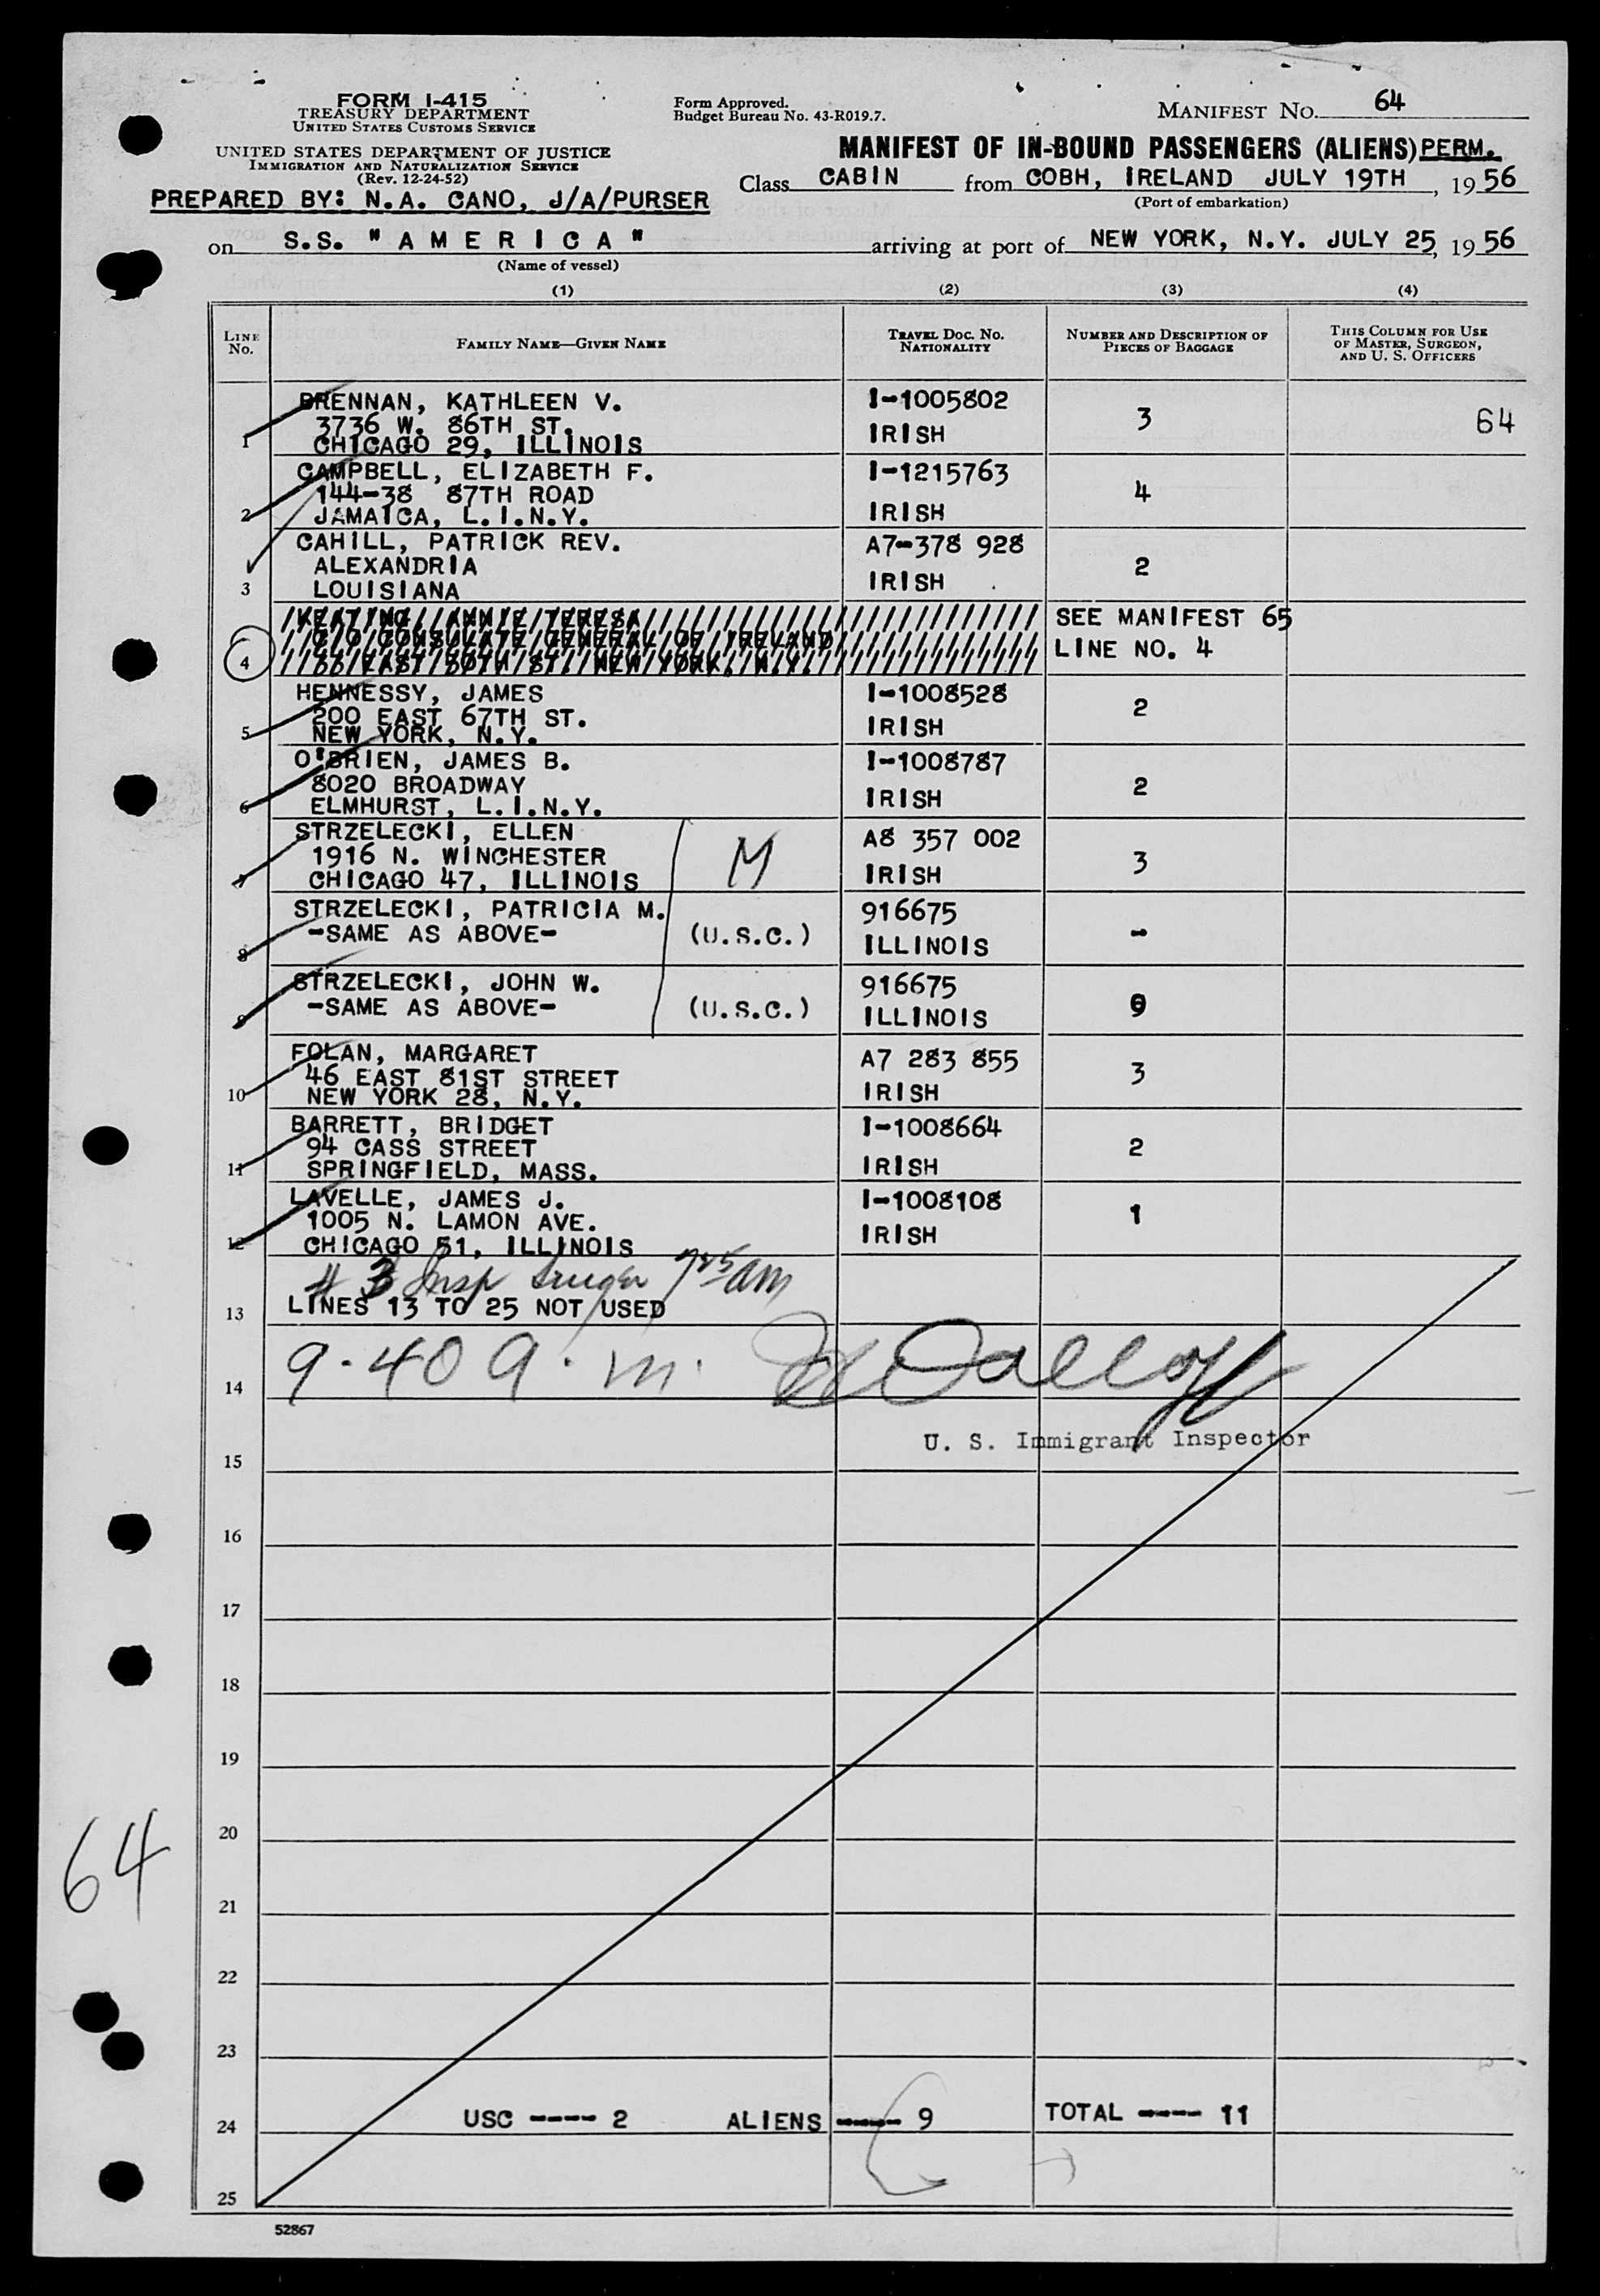 FORM I-415
TREASURY DEPARTMENT
UNITED STATES CUSTOMS SERVICE
UNITED STATES DEPARTMENT OF JUSTICE
IMMIGRATION AND NATURALIZATION SERVICE
(Rev. 12-24-52)
PREPARED BY: N.A. CANO, J/A/PURSER
Form Approved.
Budget Bureau No. 43-R019.7.
MANIFEST NO. 64
MANIFEST OF IN-BOUND PASSENGERS (ALIENS) PERM.
Class CABIN from COBH, IRELAND JULY 19TH, 1956
(Port of embarkation)
on S.S. "AMERICA" arriving at port of NEW YORK, N.Y. JULY 25, 1956
(Name of vessel)
(1) (2) (3) (4)
LINE NO. FAMILY NAME—GIVEN NAME TRAVEL DOC. NO. NATIONALITY NUMBER AND DESCRIPTION OF PIECES OF BAGGAGE THIS COLUMN FOR USE OF MASTER, SURGEON, AND U. S. OFFICERS
BRENNAN, KATHLEEN V. I-1005802
3736 W. 86TH ST. 3 64
1 CHICAGO 29, ILLINOIS IRISH
CAMPBELL, ELIZABETH F. I-1215763
144-38 87TH ROAD 4
2 JAMAICA, L.I.N.Y. IRISH
CAHILL, PATRICK REV. A7-378 928
ALEXANDRIA 2
3 LOUISIANA IRISH
KEATING, ANNIE TERESA SEE MANIFEST 65
C/O CONSULATE GENERAL OF IRELAND LINE NO. 4
4 33 EAST 50TH ST. NEW YORK, N.Y.
HENNESSY, JAMES I-1008528
200 EAST 67TH ST. 2
5 NEW YORK, N.Y. IRISH
O'BRIEN, JAMES B. I-1008787
8020 BROADWAY 2
6 ELMHURST, L.I.N.Y. IRISH
STRZELECKI, ELLEN A8 357 002
1916 N. WINCHESTER M 3
7 CHICAGO 47, ILLINOIS IRISH
STRZELECKI, PATRICIA M. 916675
8 -SAME AS ABOVE- (U.S.C.) ILLINOIS -
STRZELECKI, JOHN W. 916675
9 -SAME AS ABOVE- (U.S.C.) ILLINOIS
FOLAN, MARGARET A7 283 855
46 EAST 81ST STREET 3
10 NEW YORK 28, N.Y. IRISH
BARRETT, BRIDGET I-1008664
94 CASS STREET 2
11 SPRINGFIELD, MASS. IRISH
LAVELLE, JAMES J. I-1008108
1005 N. LAMON AVE. 1
12 CHICAGO 51, ILLINOIS IRISH
# 3 Insp am
13 LINES 13 TO 25 NOT USED
14 9.40 a.m.
U. S. Immigrant Inspector
15
16
17
18
19
20
64
21
22
23
24 USC ---- 2 ALIENS ---- 9 TOTAL ---- 11
25
52867